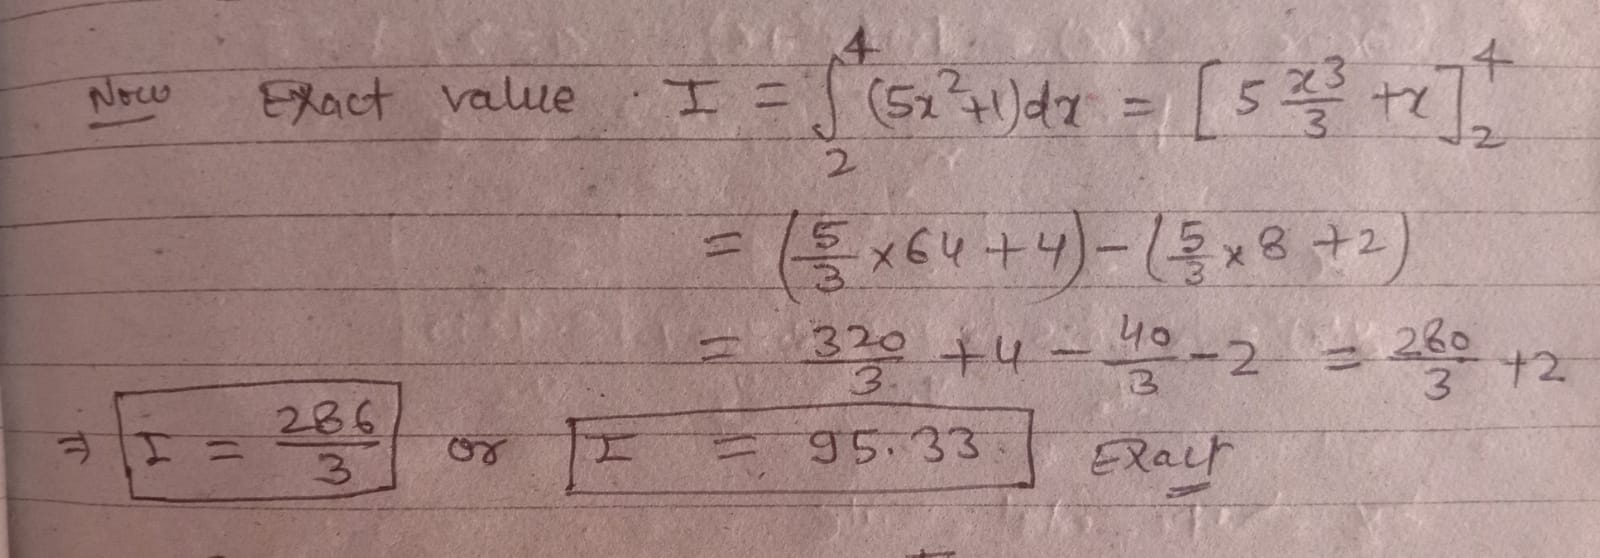 Now Exact value . I = ∫₂⁴ (5x²+1)dx = [5 x³/3 + x]₂⁴
= (5/3 × 64 + 4) − (5/3 × 8 + 2)
= 320/3 + 4 − 40/3 − 2 = 280/3 + 2
⇒ I = 286/3 or I = 95.33. Exact